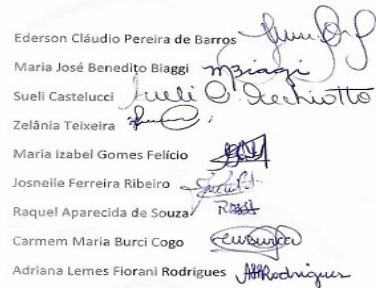 Ederson Cláudio Pereira de Barros
Maria José Benedito Biaggi mBiaggi
Sueli Castelucci Sueli C. Occhiotto
Zelânia Teixeira
Maria Izabel Gomes Felício
Josneile Ferreira Ribeiro
Raquel Aparecida de Souza
Carmem Maria Burci Cogo
Adriana Lemes Fiorani Rodrigues AHRodrigues